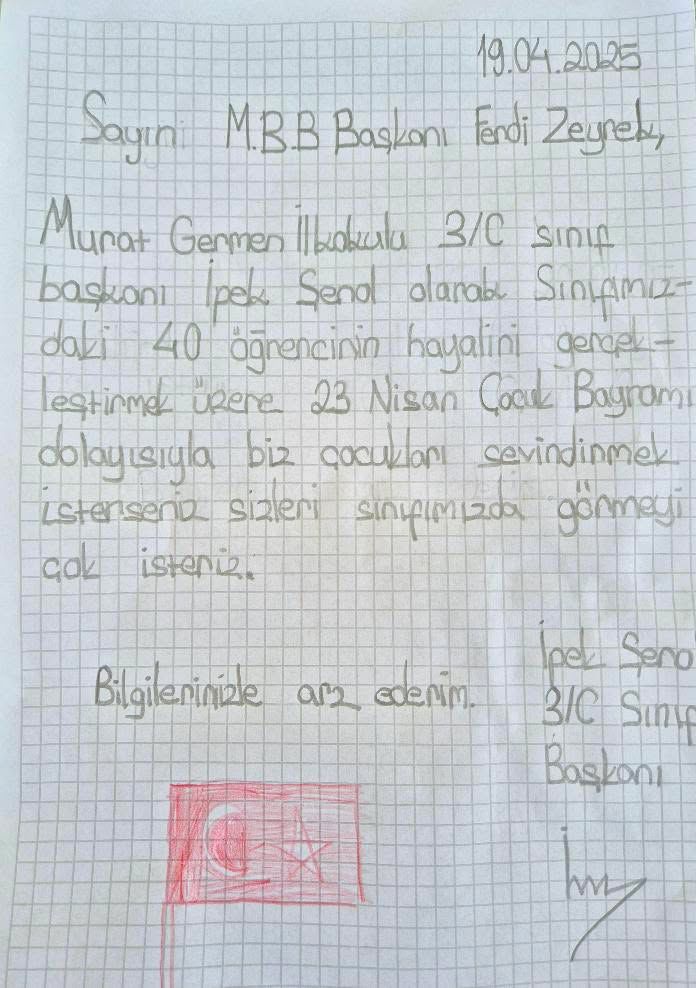 19.04.2025
Sayın M.B.B Başkanı Ferdi Zeyrek,
Murat Germen İlkokulu 3/C sınıf
başkanı İpek Şenol olarak Sınıfımız-
daki 40 öğrencinin hayalini gerçek-
leştirmek üzere 23 Nisan Çocuk Bayramı
dolayısıyla biz çocukları sevindirmek
isterseniz sizleri sınıfımızda görmeyi
çok isteriz.
Bilgilerinizle arz ederim.
İpek Şeno
3/C Sınıf
Başkanı